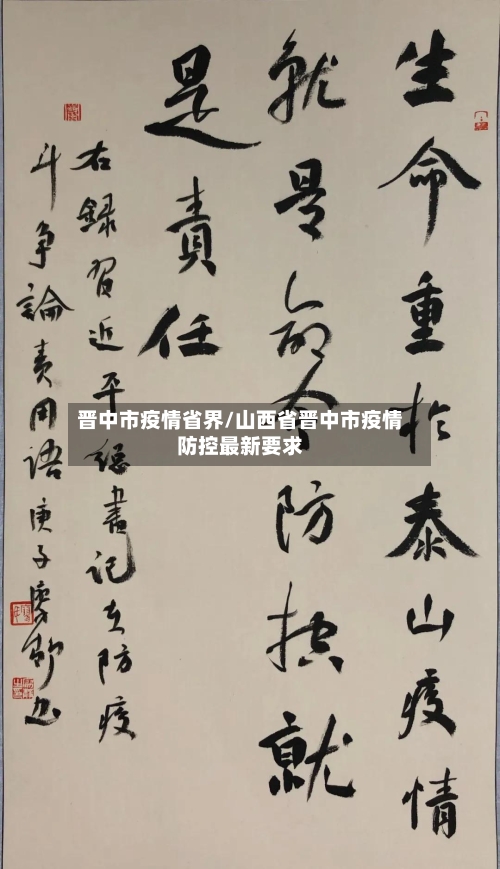 生命重於泰山疫情
就是命令防控就
是責任
右録習近平總書記在防疫
斗争論責用語庚子
晋中市疫情省界/山西省晋中市疫情
防控最新要求